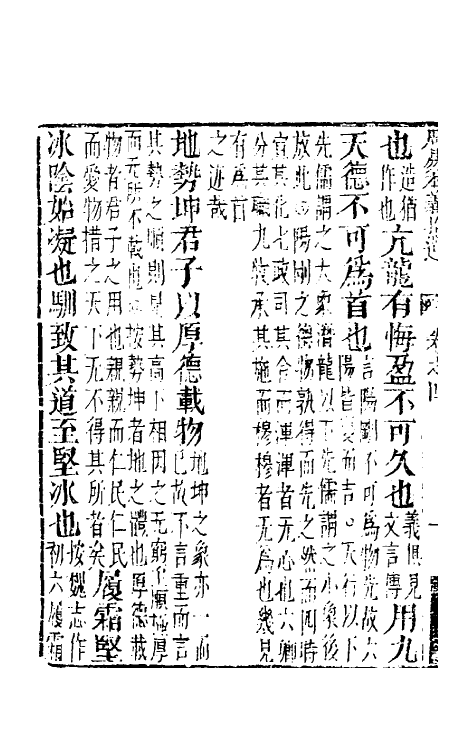 也造猶作也亢龍有悔盈不可久也義俱見文言傳用九
天德不可爲首也言陽剛不可爲物先故六陽皆變而吉○天行以下
先儒謂之大象潛龍以下先儒謂之小象後放此○陽剛之德物孰得而先之然而四時
宣其化七政司其令而渾渾者无心也六卿分其職九牧承其施而穆穆者无爲也幾見
有爲首之迹哉
地勢坤君子以厚德載物地坤之象亦一而已故不言重而言
其勢之順則見其高下相因之无窮至順極厚而无所不載也按勢坤者地之體也厚德載
物者君子之用也親親而仁民仁民而愛物措之天下无不得其所者矣履霜堅
冰陰始凝也馴致其道至堅冰也按魏志作初六履霜